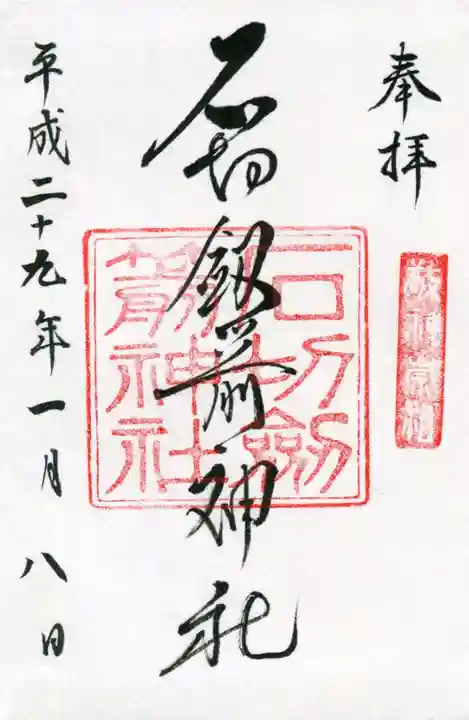 奉拝
石切劔箭神社
石切劔
箭神社
平成二十九年一月八日